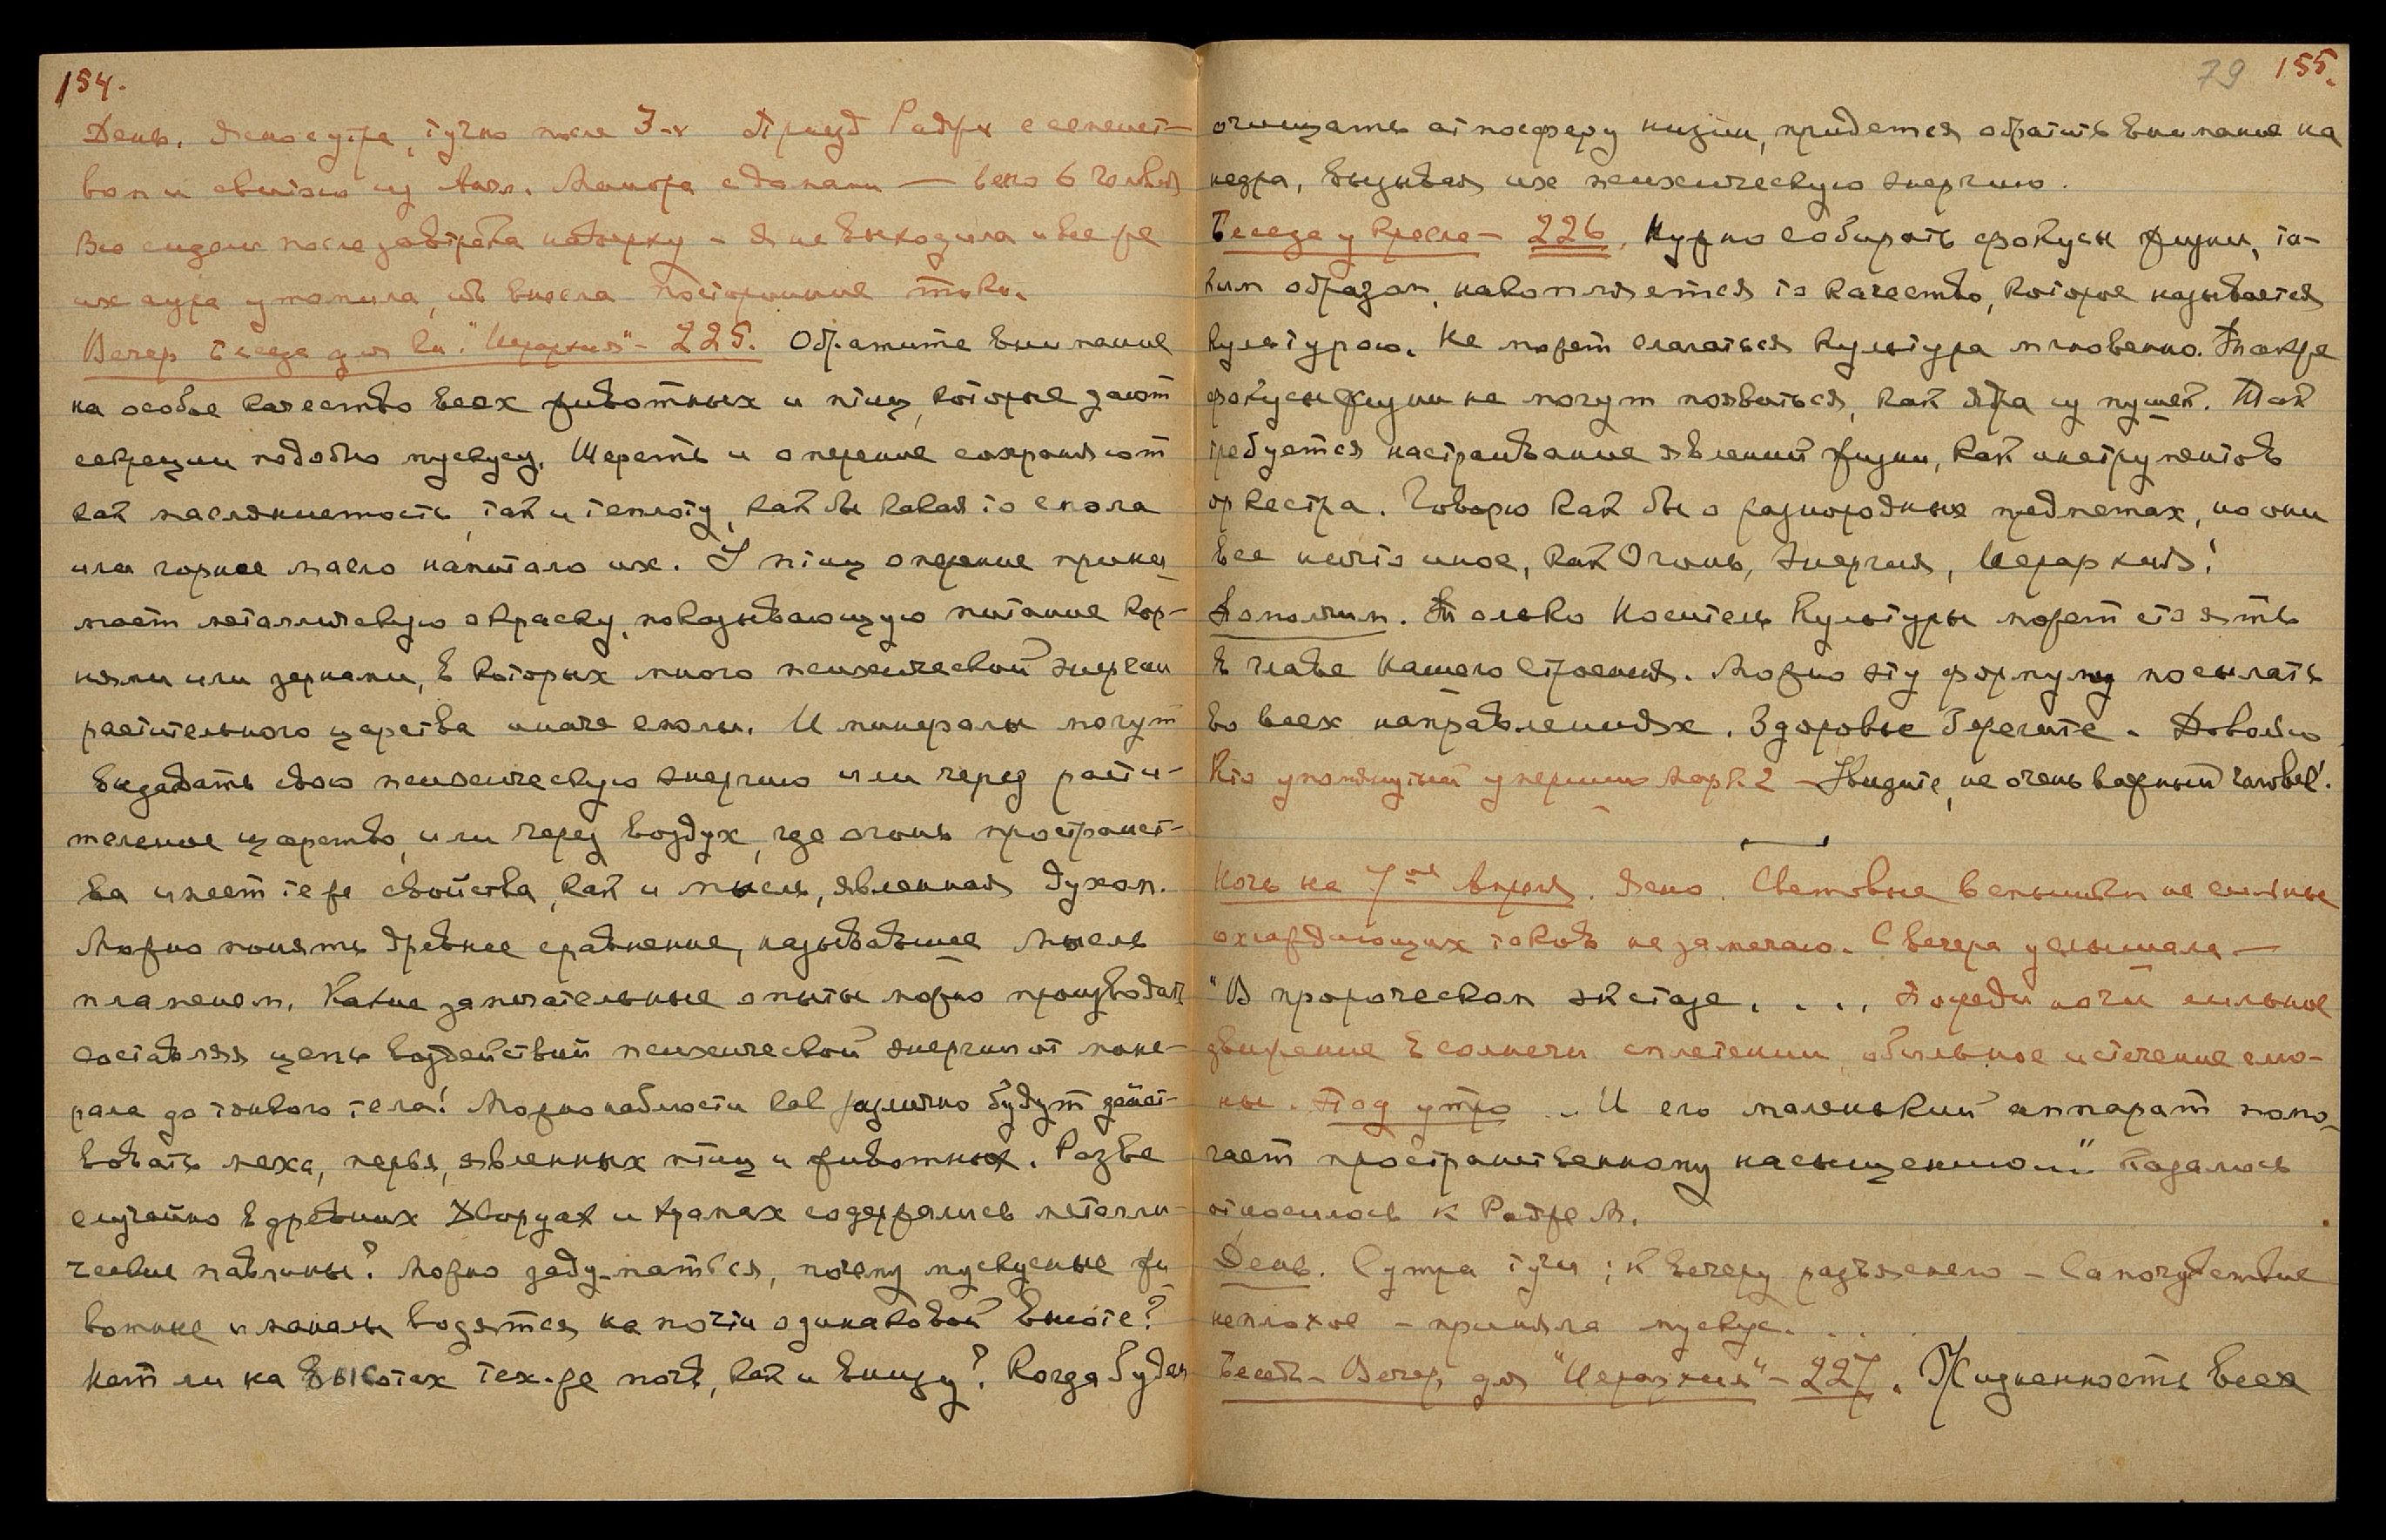 154.
День. Ясно с утра, тучно после 3-х Приезд Раджи с семейст-
вом и свитою из Англ. Майора с дамами — всего 6 человек
Все сидели после завтрака наверху – я не выходила и все же
их аура утомила, ибо внесла посторонние токи.
Вечер Беседа для кн. "Иерархия" – 225. Обратите внимание
на особое качество всех животных и птиц, которые дают
секреции подобно мускусу. Шерсть и оперение сохраняют
как маслянистость, так и теплоту, как бы какая то смола
или горное масло напитало их. У птиц оперение прини-
мает металлическую окраску, показывающую питание кор-
нями или зернами, в которых много психической энергии
растительного царства иначе смолы. И минералы могут
выдавать свою психическую энергию или через расти-
тельное царство, или через воздух, где огонь пространст-
ва имеет те же свойства, как и мысль, явленная духом.
Можно понять древнее сравнение, называвшее мысль
пламенем. Какие замечательные опыты можно производить
составляя цепь воздействий психической энергии от мине-
рала до тонкого тела! Можно наблюсти как различно будут дейст-
вовать меха, перья, явленных птиц и животных. Разве
случайно в древних Дворцах и храмах содержались металли-
ческие павлины? Можно задуматься, почему мускусные жи-
вотные и моналы водятся на почти одинаковой высоте?
Нет ли на высотах тех-же почв, как и внизу? Когда будем
79 155.
очищать атмосферу низин, придется обратить внимание на
недра, вызывая их психическую энергию.
Беседа у Кресла – 226. Нужно собирать фокусы жизни, та-
ким образом, накопляется то качество, которое называется
культурою. Не может слагаться культура мгновенно. Также
фокусы жизни не могут появиться, как ядра из пушек. Так
требуется настраивание явлений жизни, как инструментов
оркестра. Говорю как бы о разнородных предметах, но они
все ничто иное, как Огонь, Энергия, Иерархия!
Дополним. Только Носитель Культуры может стоять
в главе Нашего Строения. Можно эту формулу посылать
во всех направлениях. Здоровье Берегите. Довольно
Кто упомянутый умерший Март. 2 – Увидите, не очень важный человек.
Ночь на 7ое Апреля. Ясно. Световые вспышки не сильные
охлаждающих токов не замечаю. С вечера услышала —
"В пророческом экстазе. . . . Посреди ночи сильное
движение в солнечн. сплетении, обильное истечение слю-
ны. Под утро .. И его маленький аппарат помо-
гает пространственному насыщению..." Казалось
относилось к Радже М.
День. С утра тучи; к вечеру разъяснело – Самочувствие
неплохое – приняла мускус. . . .
Беседа – Вечер, для "Иерархии" – 227. Жизненность всех